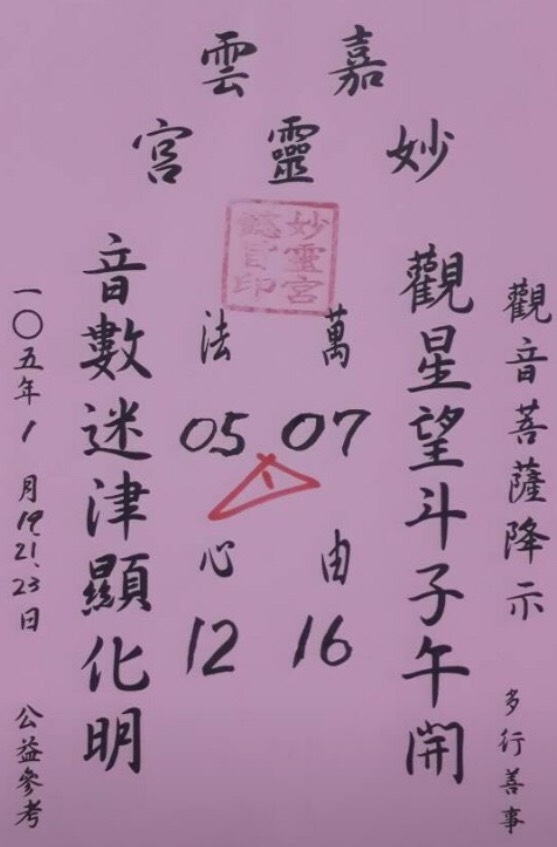 嘉雲
妙靈宮
觀音菩薩降示 多行善事
觀星望斗子午開
萬 07 由 16
法 05 心 12
音數迷津顯化明
一〇五年1月19.21.23日 公益參考
妙靈宮
印